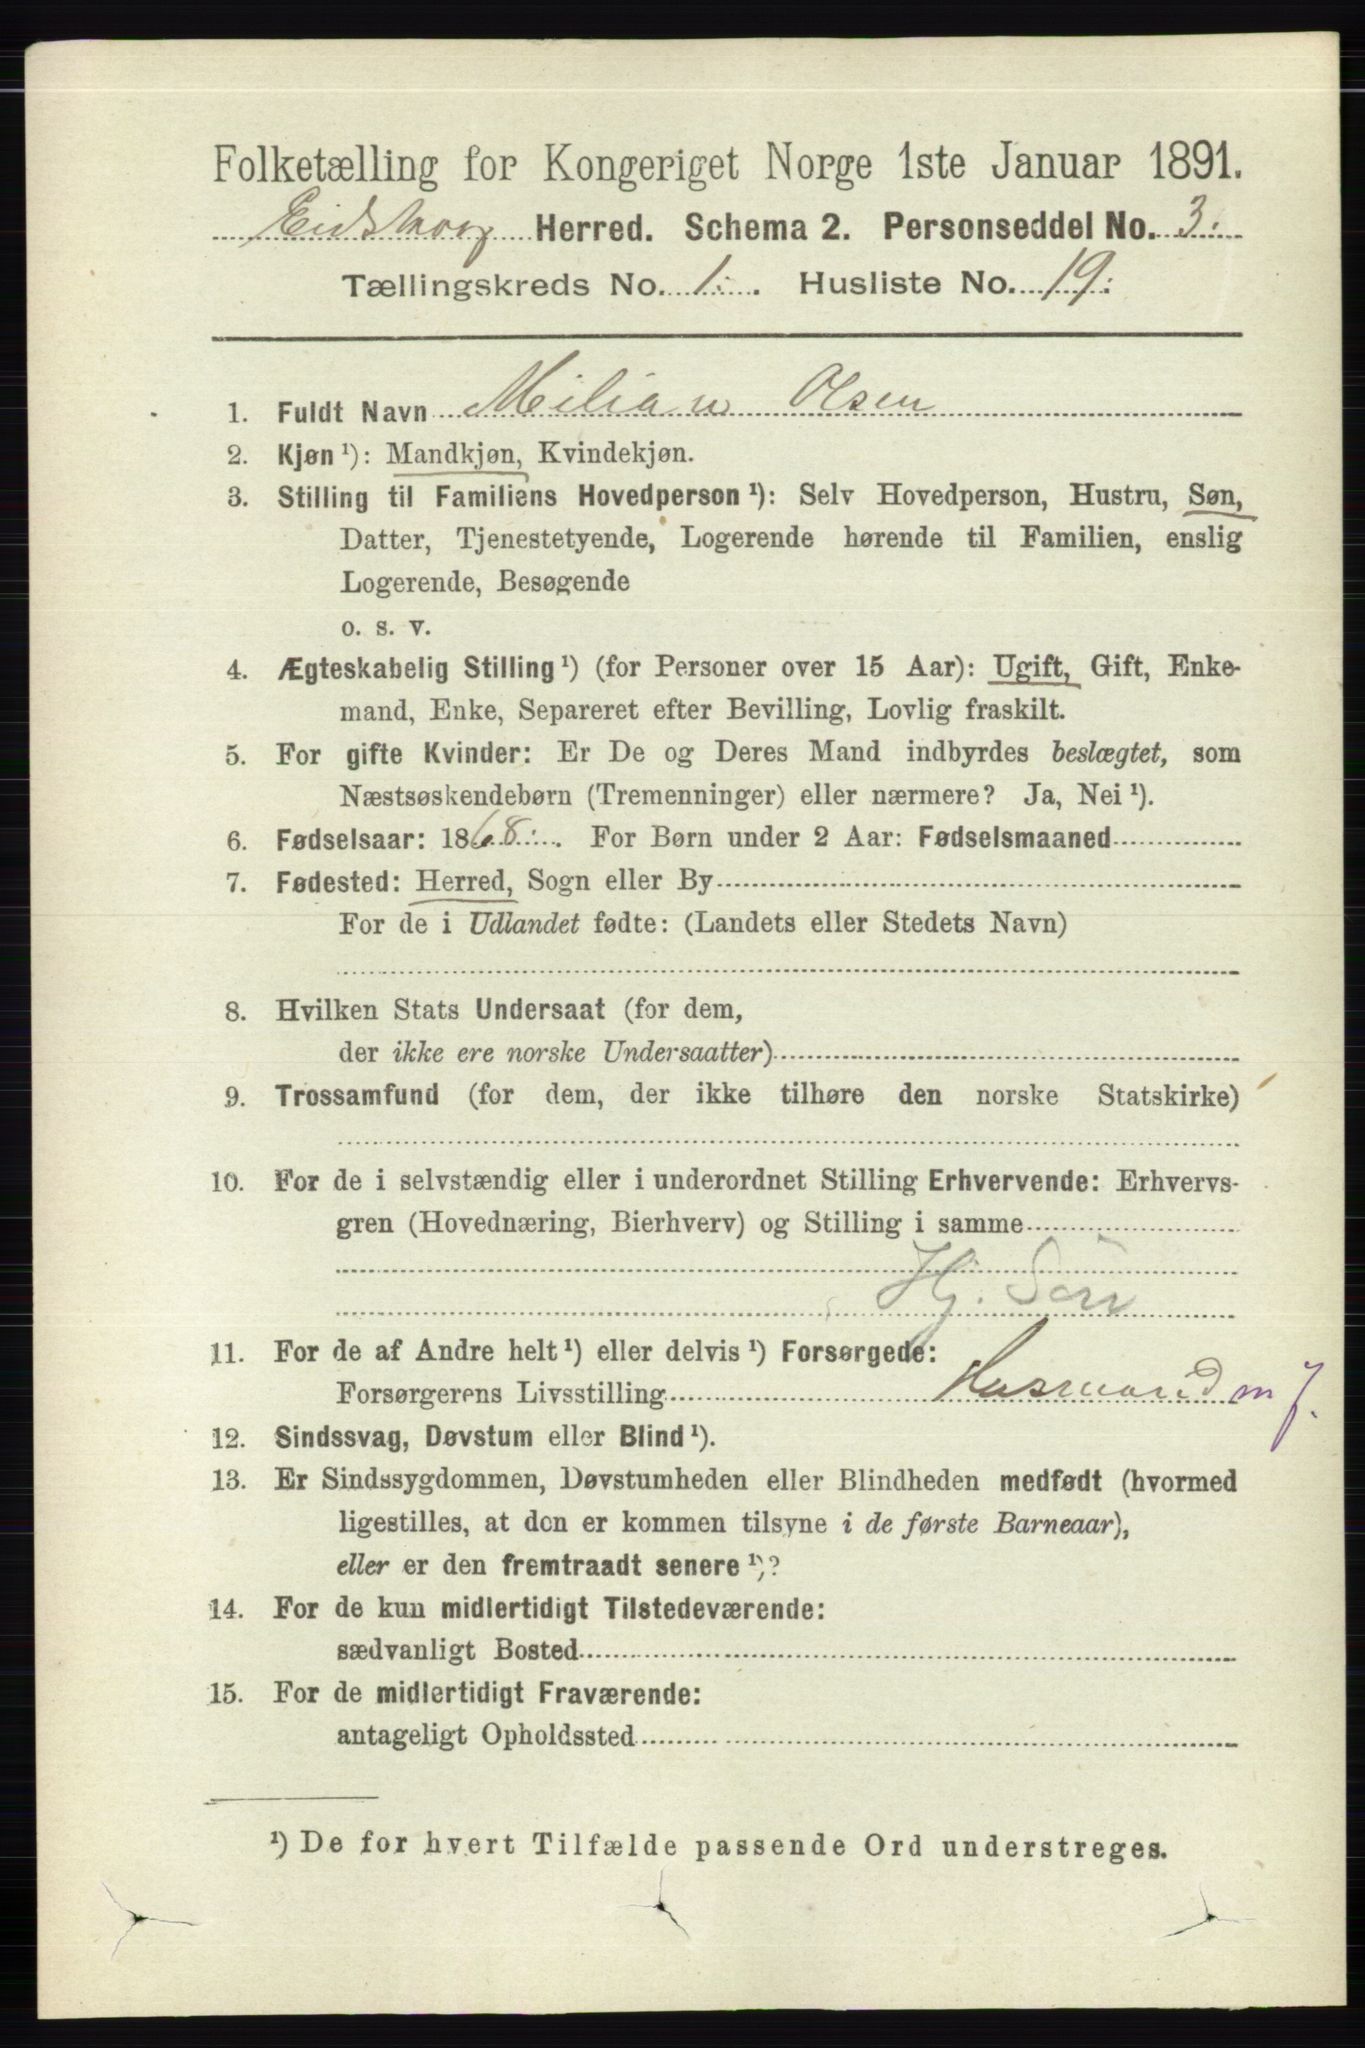 Folketælling for Kongeriget Norge 1ste Januar 1891.
Eidskog Herred. Schema 2. Personseddel No. 3.
Tællingskreds No. 1. Husliste No. 19.
1. Fuldt Navn Milian Olsen
2. Kjøn ¹): Mandkjøn, Kvindekjøn.
3. Stilling til Familiens Hovedperson ¹): Selv Hovedperson, Hustru, Søn,
Datter, Tjenestetyende, Logerende hørende til Familien, enslig
Logerende, Besøgende
o. s. v.
4. Ægteskabelig Stilling ¹) (for Personer over 15 Aar): Ugift, Gift, Enke-
mand, Enke, Separeret efter Bevilling, Lovlig fraskilt.
5. For gifte Kvinder: Er De og Deres Mand indbyrdes beslægtet, som
Næstsøskendebørn (Tremenninger) eller nærmere? Ja, Nei ¹).
6. Fødselsaar: 1868. For Børn under 2 Aar: Fødselsmaaned
7. Fødested: Herred, Sogn eller By
For de i Udlandet fødte: (Landets eller Stedets Navn)
8. Hvilken Stats Undersaat (for dem,
der ikke ere norske Undersaatter)
9. Trossamfund (for dem, der ikke tilhøre den norske Statskirke)
10. For de i selvstændig eller i underordnet Stilling Erhvervende: Erhvervs-
gren (Hovednæring, Bierhverv) og Stilling i samme
Hj. Søn
11. For de af Andre helt ¹) eller delvis ¹) Forsørgede:
Forsørgerens Livsstilling Husmand m j.
12. Sindssvag, Døvstum eller Blind ¹).
13. Er Sindssygdommen, Døvstumheden eller Blindheden medfødt (hvormed
ligestilles, at den er kommen tilsyne i de første Barneaar),
eller er den fremtraadt senere ¹)?
14. For de kun midlertidigt Tilstedeværende:
sædvanligt Bosted
15. For de midlertidigt Fraværende:
antageligt Opholdssted
¹) De for hvert Tilfælde passende Ord understreges.